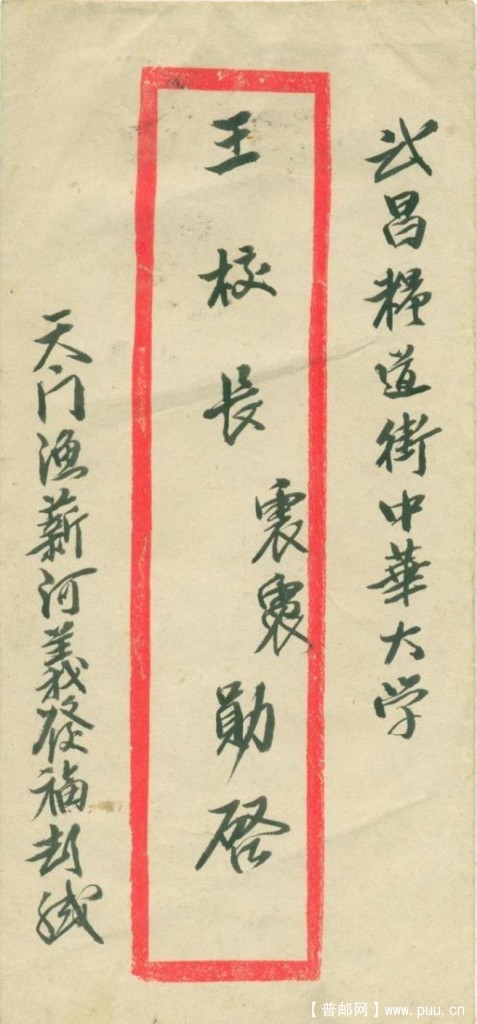 武昌粮道街中華大学
王校長震寰勛啓
天门渔薪河義發福缄
【普邮网】www.puu.cn